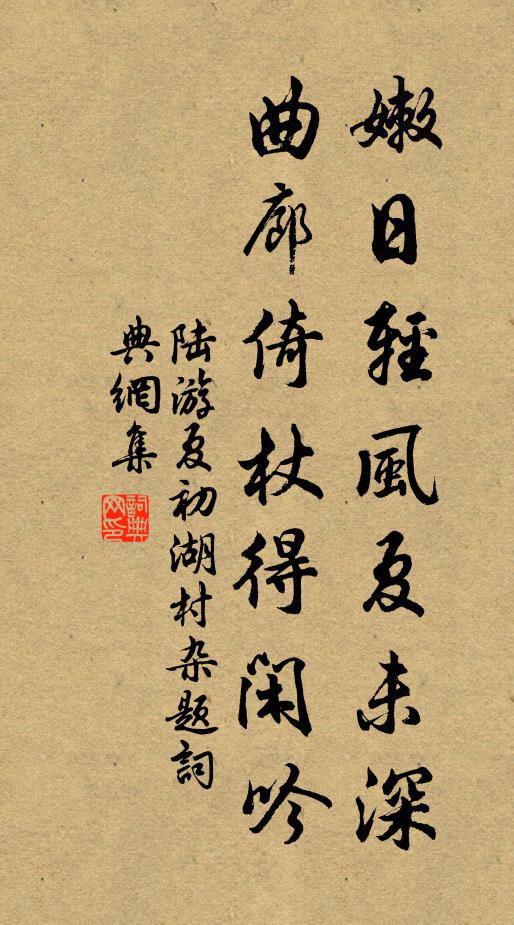 嫩日輕風夏未深
曲廊倚杖得閑吟
陆游夏初湖村杂题詞
典網集
詞典
网印